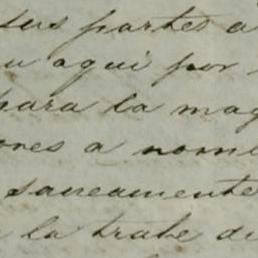 sus partes a
u aqui por
para la mag
ones a nom
sacramente
la trate de